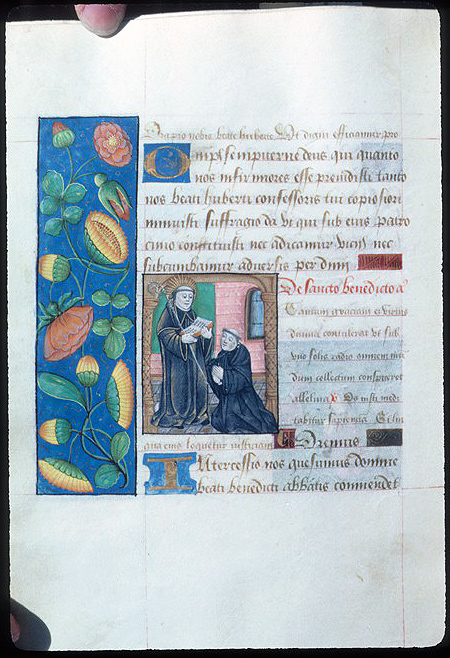 Ora pro nobis beate huberte Ut digni efficiamur pro
Omps sempiterne deus qui quanto
nos infirmiores esse prendisti tanto
nos beati huberti confessoris tui copiosiori
muniisti suffragio da ut qui sub eius patro
cinio constituisti nec adicamur viciis nec
subcumbamur aduersis per dnm
De sancto benedicto a
Tantam graciam
diuina contulerat vt sub
vno solis radio omnem mu
dum collectum conspiceret
alleluia v Os iusti medi
tabitur sapientia Et lin
gua eius loquetur iusticiam Oremus
Intercessio nos quesumus domine
beati benedicti abbatis commendet